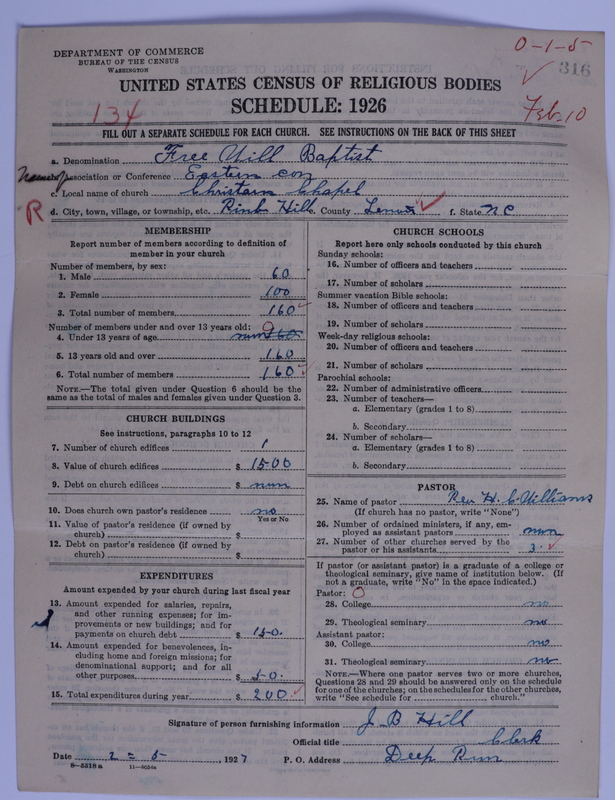 DEPARTMENT OF COMMERCE
BUREAU OF THE CENSUS
WASHINGTON
0-1-5
316
UNITED STATES CENSUS OF RELIGIOUS BODIES
SCHEDULE: 1926
134
Feb 10
FILL OUT A SEPARATE SCHEDULE FOR EACH CHURCH. SEE INSTRUCTIONS ON THE BACK OF THIS SHEET
a. Denomination Free Will Baptist
Association or Conference Eastern con
c. Local name of church Christain Chapel
R
d. City, town, village, or township, etc. Pink Hill e. County Lenoir f. State NC
MEMBERSHIP
Report number of members according to definition of
member in your church
Number of members, by sex:
1. Male 60
2. Female 100
3. Total number of members 160
Number of members under and over 13 years old:
4. Under 13 years of age 0
5. 13 years old and over 160
6. Total number of members 160
NOTE.—The total given under Question 6 should be the
same as the total of males and females given under Question 3.
CHURCH BUILDINGS
See instructions, paragraphs 10 to 12
7. Number of church edifices 1
8. Value of church edifices $ 1500
9. Debt on church edifices $ nun
10. Does church own pastor's residence no
Yes or No
11. Value of pastor's residence (if owned by
church) $
12. Debt on pastor's residence (if owned by
church) $
EXPENDITURES
Amount expended by your church during last fiscal year
13. Amount expended for salaries, repairs,
and other running expenses; for im-
provements or new buildings; and for
payments on church debt $ 150.
14. Amount expended for benevolences, in-
cluding home and foreign missions; for
denominational support; and for all
other purposes $ 50.
15. Total expenditures during year $ 200
CHURCH SCHOOLS
Report here only schools conducted by this church
Sunday schools:
16. Number of officers and teachers
17. Number of scholars
Summer vacation Bible schools:
18. Number of officers and teachers
19. Number of scholars
Week-day religious schools:
20. Number of officers and teachers
21. Number of scholars
Parochial schools:
22. Number of administrative officers
23. Number of teachers—
a. Elementary (grades 1 to 8)
b. Secondary
24. Number of scholars—
a. Elementary (grades 1 to 8)
b. Secondary
PASTOR
25. Name of pastor Rev. H. C. Williams
(If church has no pastor, write "None")
26. Number of ordained ministers, if any, em-
ployed as assistant pastors nun
27. Number of other churches served by the
pastor or his assistants 3.
If pastor (or assistant pastor) is a graduate of a college or
theological seminary, give name of institution below. (If
not a graduate, write "No" in the space indicated.)
Pastor: 0
28. College no
29. Theological seminary no
Assistant pastor:
30. College no
31. Theological seminary no
NOTE.—Where one pastor serves two or more churches,
Questions 28 and 29 should be answered only on the schedule
for one of the churches; on the schedules for the other churches,
write "See schedule for church."
Signature of person furnishing information J B Hill
Official title Clerk
Date 2 = 5, 1927 P. O. Address Deep Run
8—5518 a 11—9024a